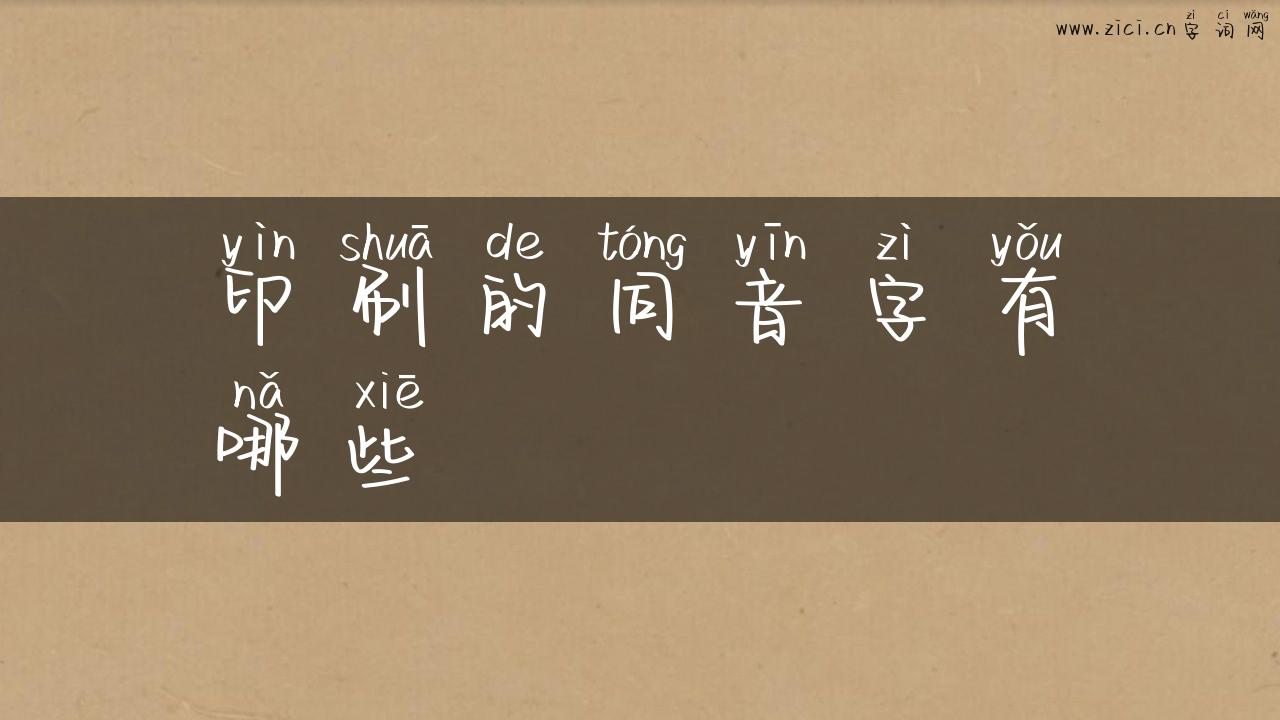 zì cí wǎng
www.zici.cn 字词网
yìn shuā de tóng yīn zì yǒu
印刷的同音字有
nǎ xiē
哪些